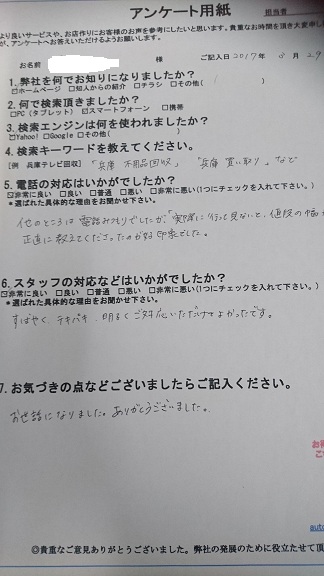 アンケート用紙
担当者
より良いサービスや、お店作りにお客様のお声を参考にしたいと思います。貴重なお時間を頂き大変申し
が、アンケートへお答えいただけるようお願いします。
お名前 様 ご記入日 2017年 8月29
1.弊社を何でお知りになりましたか?
☑ホームページ □知人からの紹介 □チラシ □その他( )
2.何で検索頂きましたか?
□PC(タブレット) ☑スマートフォーン □携帯
3.検索エンジンは何を使われましたか?
☑Yahoo! □Google □その他( )
4.検索キーワードを教えてください。
[例 兵庫テレビ回収] 「兵庫 不用品回収」 「兵庫 買い取り」など
5.電話の対応はいかがでしたか?
☑非常に良い □良い □普通 □悪い □非常に悪い(1つにチェックを入れて下さい。)
*選ばれた具体的な理由をお聞かせ下さい。
他のところは電話みつもりでしたが、「実際に行って見ないと、値段の幅が
正直に教えてくださったのが好印象でした。
6.スタッフの対応などはいかがでしたか?
☑非常に良い □良い □普通 □悪い □非常に悪い(1つにチェックを入れて下さい。)
*選ばれた具体的な理由をお聞かせ下さい。
すばやく、テキパキ、明るくご対応いただけてよかったです。
7.お気づきの点などございましたらご記入ください。
お世話になりました。ありがとうございました。
お得
こち
auto
◎貴重なご意見ありがとうございました。弊社の発展のために役立たせて頂